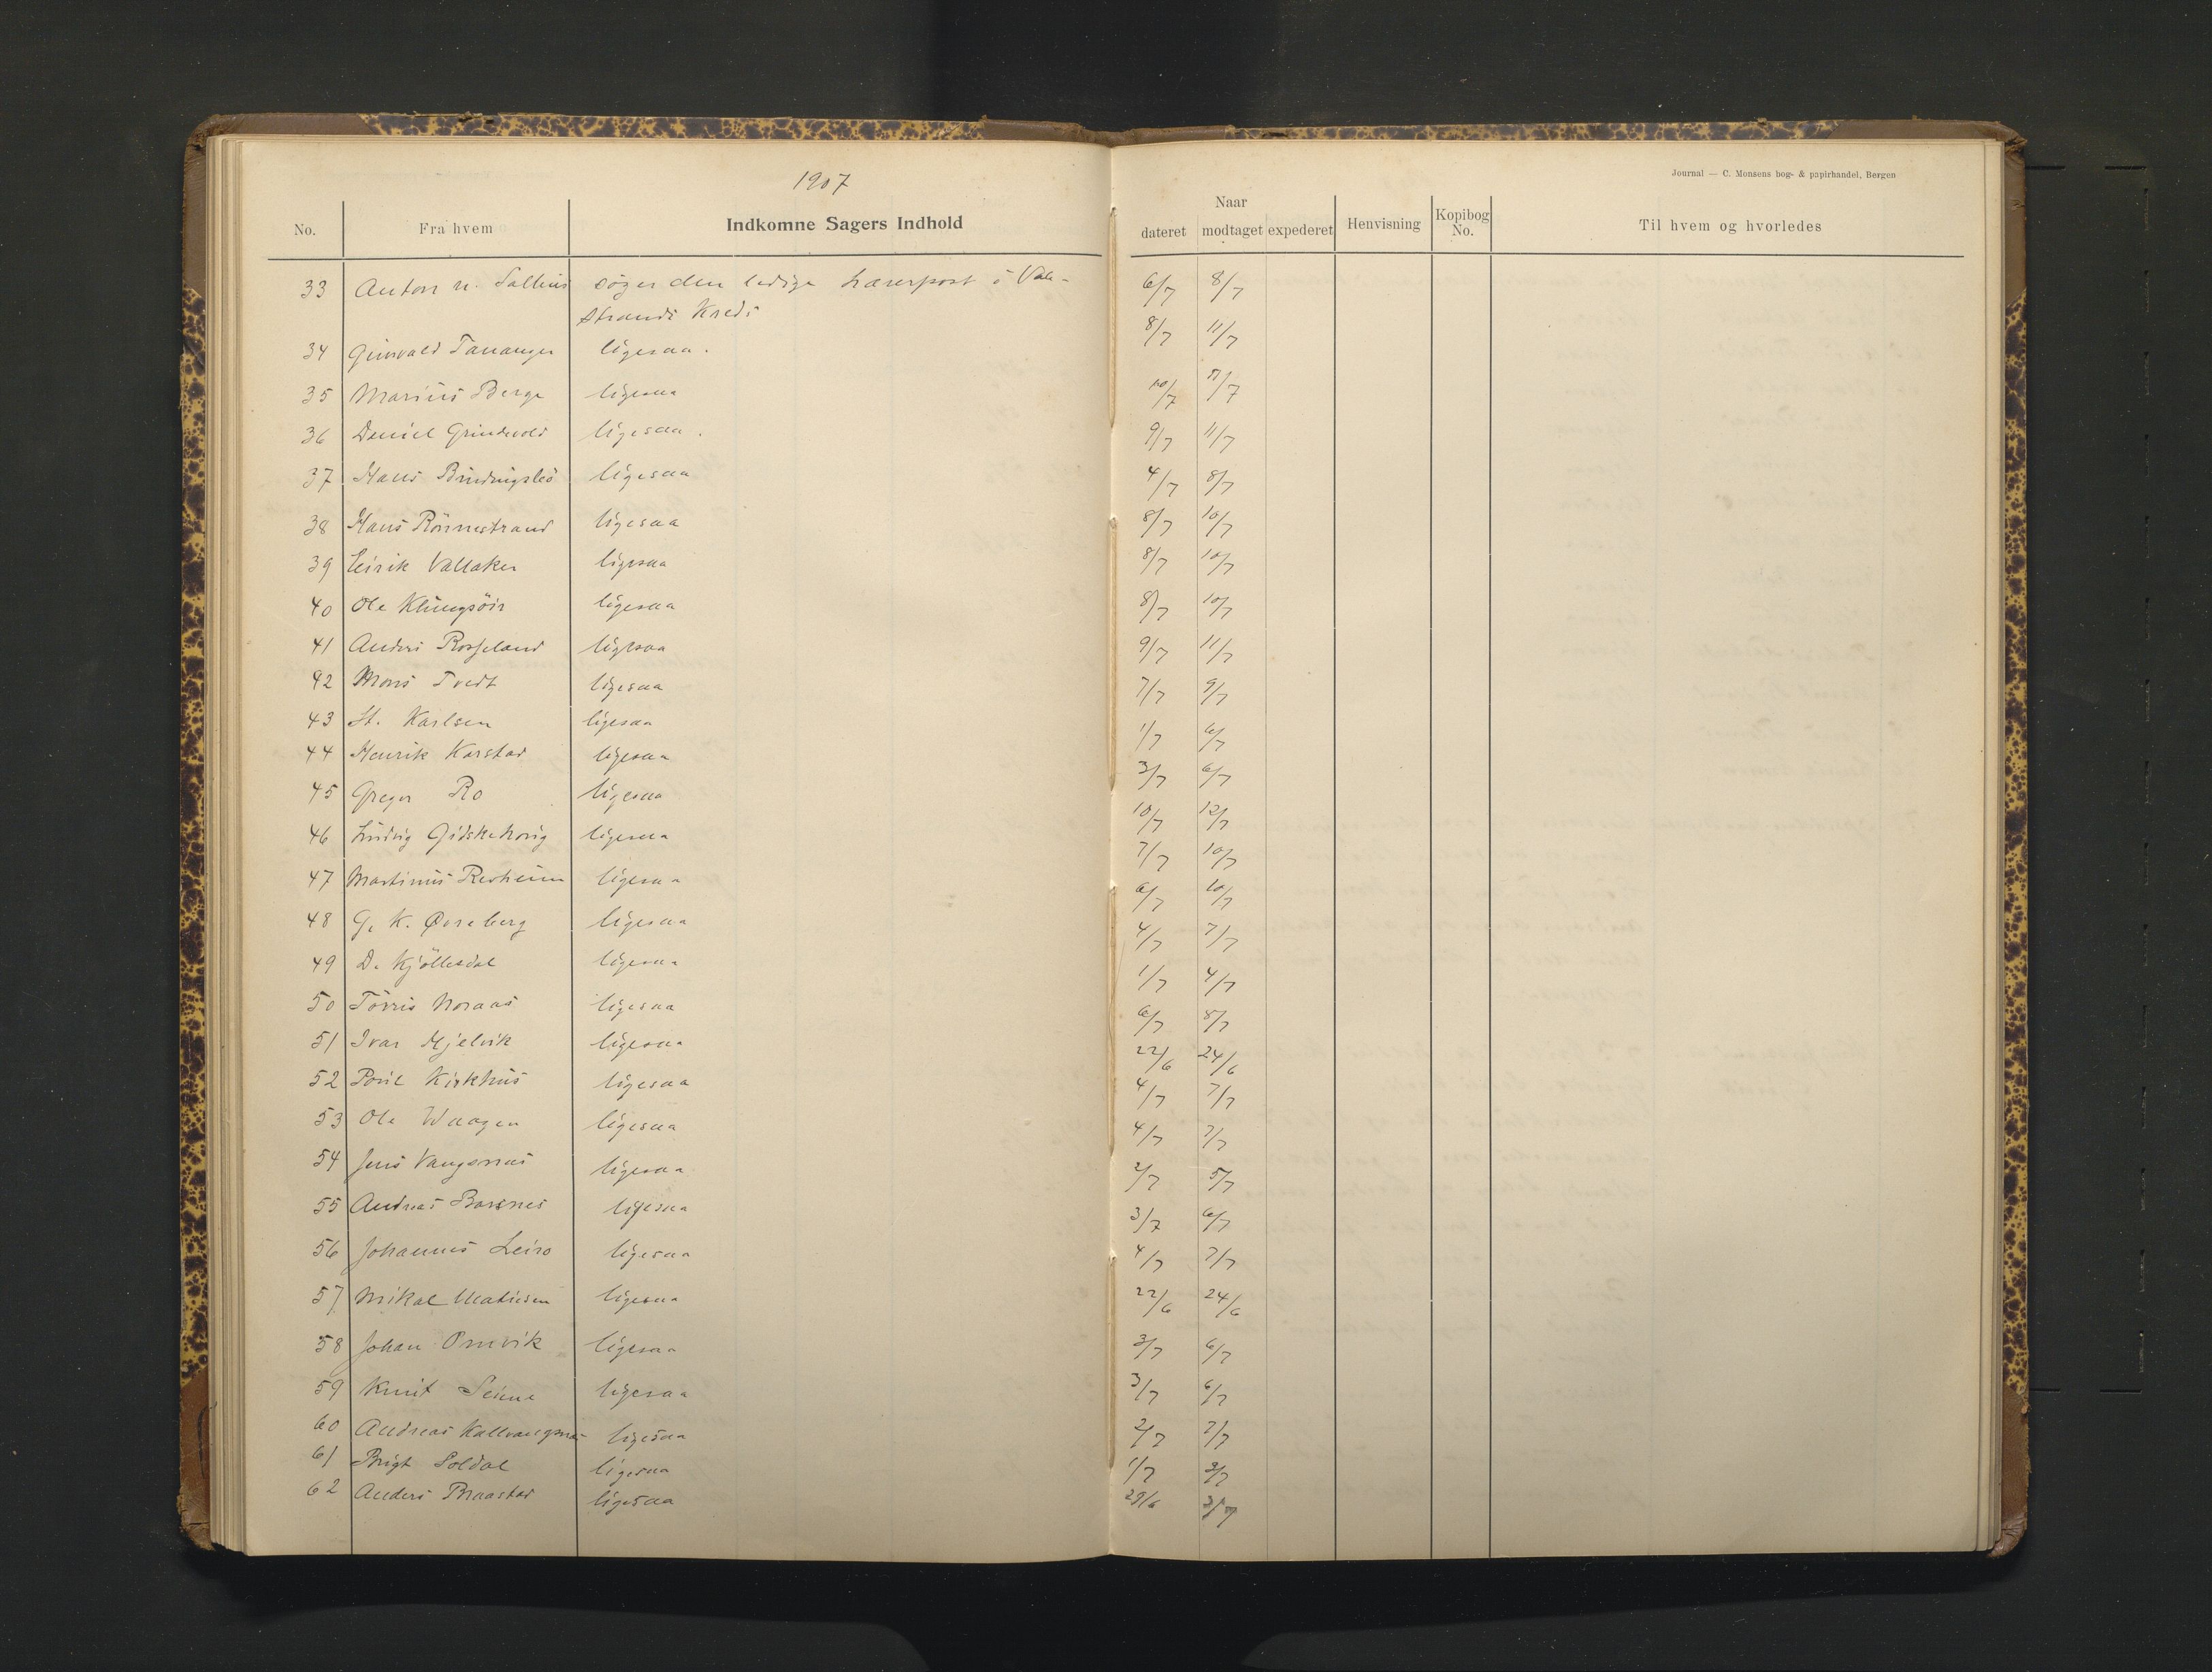 1907
Journal — C. Monsens bog- & papirhandel, Bergen
No. Fra hvem Indkomne Sagers Indhold Naar dateret modtaget expederet Henvisning Kopibog No. Til hvem og hvorledes
33 Anton n. Salhus søger den ledige Lærerpost i Vale- 6/7 8/7
strands Kreds
34 Grimvald Tananger ligesaa. 8/7 11/7
35 Marius Berge ligesaa 10/7 11/7
36 Daniel Grindevold ligesaa. 9/7 11/7
37 Hans ligesaa 4/7 8/7
38 Hans Rönnestrand ligesaa 8/7 10/7
39 Eirik Vallaker ligesaa 8/7 10/7
40 Ole Klungsöir ligesaa 8/7 10/7
41 Anders Rosseland ligesaa 9/7 11/7
42 Mons Tvedt ligesaa 7/7 9/7
43 St. Karlsen ligesaa 1/7 6/7
44 Henrik Karstad ligesaa 3/7 6/7
45 Greger Ro ligesaa 10/7 12/7
46 Ludvig Gidskehovig ligesaa 7/7 10/7
47 Martinus Resheim ligesaa 6/7 10/7
48 G. K. Øvreberg ligesaa 4/7 7/7
49 D. Kjöllesdal ligesaa 1/7 4/7
50 Törris Moraas ligesaa 6/7 8/7
51 Ivar Mjelvik ligesaa 22/6 24/6
52 Poul Kirkhus ligesaa 4/7 7/7
53 Ole Waagen ligesaa 4/7 7/7
54 Jens Vangsnæs ligesaa 2/7 5/7
55 Andreas Barsnes ligesaa 3/7 6/7
56 Johannes Leiro ligesaa 4/7 7/7
57 Mikal Mathisen ligesaa 22/6 24/6
58 Johan Omvik ligesaa 3/7 6/7
59 Knut Seime ligesaa 3/7 6/7
60 Andreas Kallvangsnæs ligesaa 2/7 7/7
61 Brigt Soldal ligesaa 1/7 3/7
62 Anders Braastad ligesaa 29/6 3/7